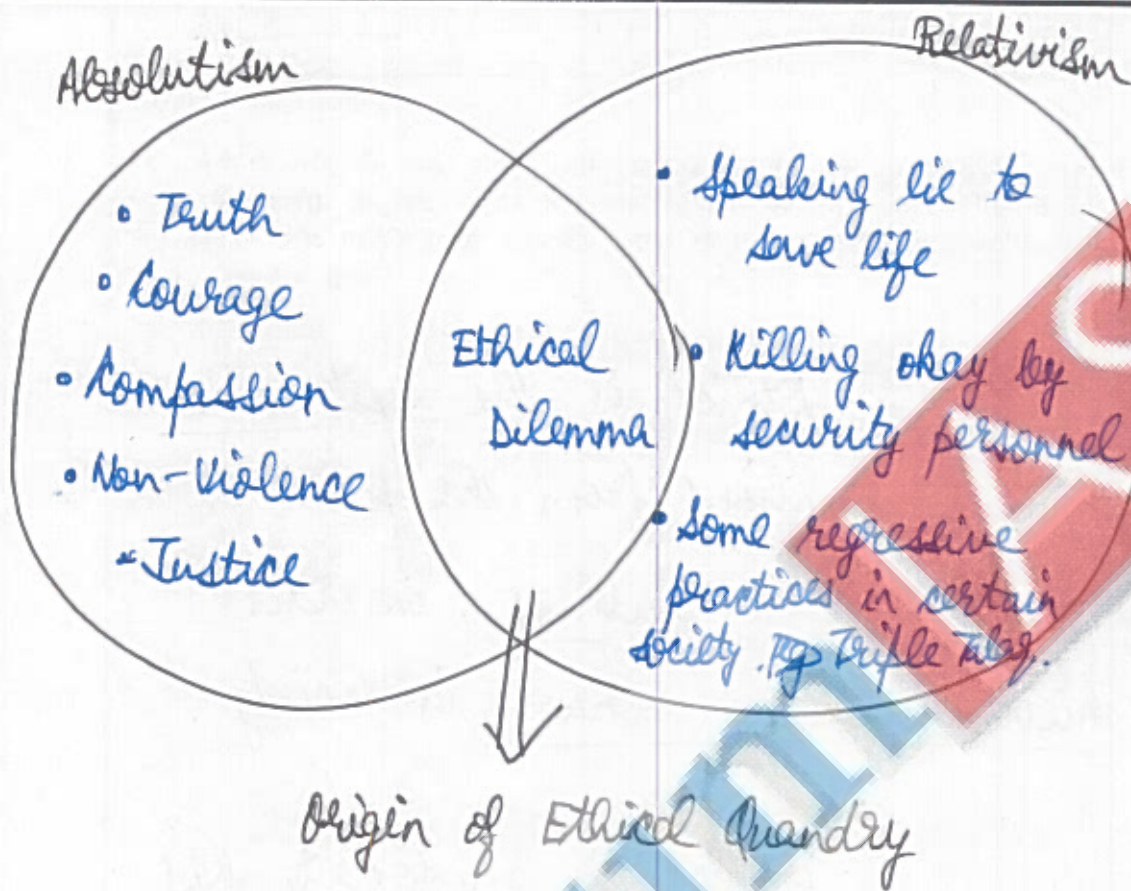 Absolutism
• Truth
• Courage
• Compassion
• Non-Violence
• Justice
Ethical
Dilemma
Relativism
• Speaking lie to
save life
• Killing okay by
security personnel
• Some regressive
practices in certain
society. Eg Triple Talaq.
Origin of Ethical Quandry
IAS
um